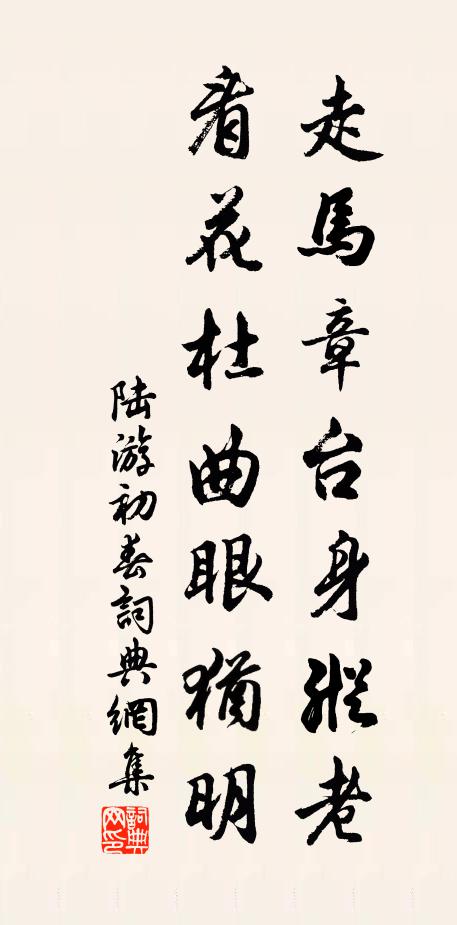 走馬章台身縱老
看花杜曲眼猶明
陆游初春詞典網集
詞典网印